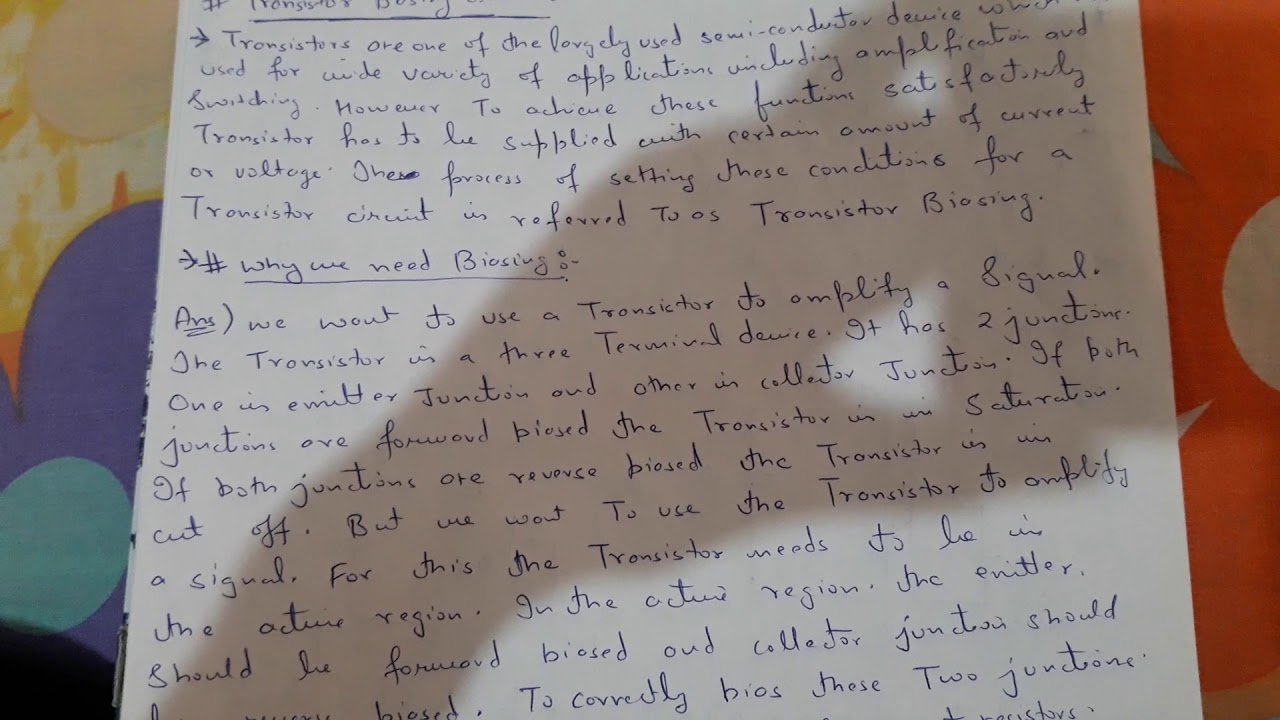 # Transistor Biasing
→ Transistors are one of the largely used semi-conductor device which
used for wide variety of applications including amplification and
Switching. However To achieve these functions satisfactorily
Transistor has to be supplied with certain amount of current
or voltage. The process of setting these conditions for a
Transistor circuit is referred To as Transistor Biasing.
→ # Why we need Biasing :-
Ans) We want to use a Transistor to amplify a Signal.
The Transistor is a three Terminal device. It has 2 junctions.
One is emitter Junction and other is collector Junction. If both
junctions are forward biased the Transistor is in Saturation.
If both junctions are reverse biased the Transistor is in
cut off. But we want To use the Transistor to amplify
a signal. For this the Transistor needs to be in
the active region. In the active region. the emitter.
Should be forward biased and collector junction should
be biased. To correctly bias these Two junctions.
resistors.